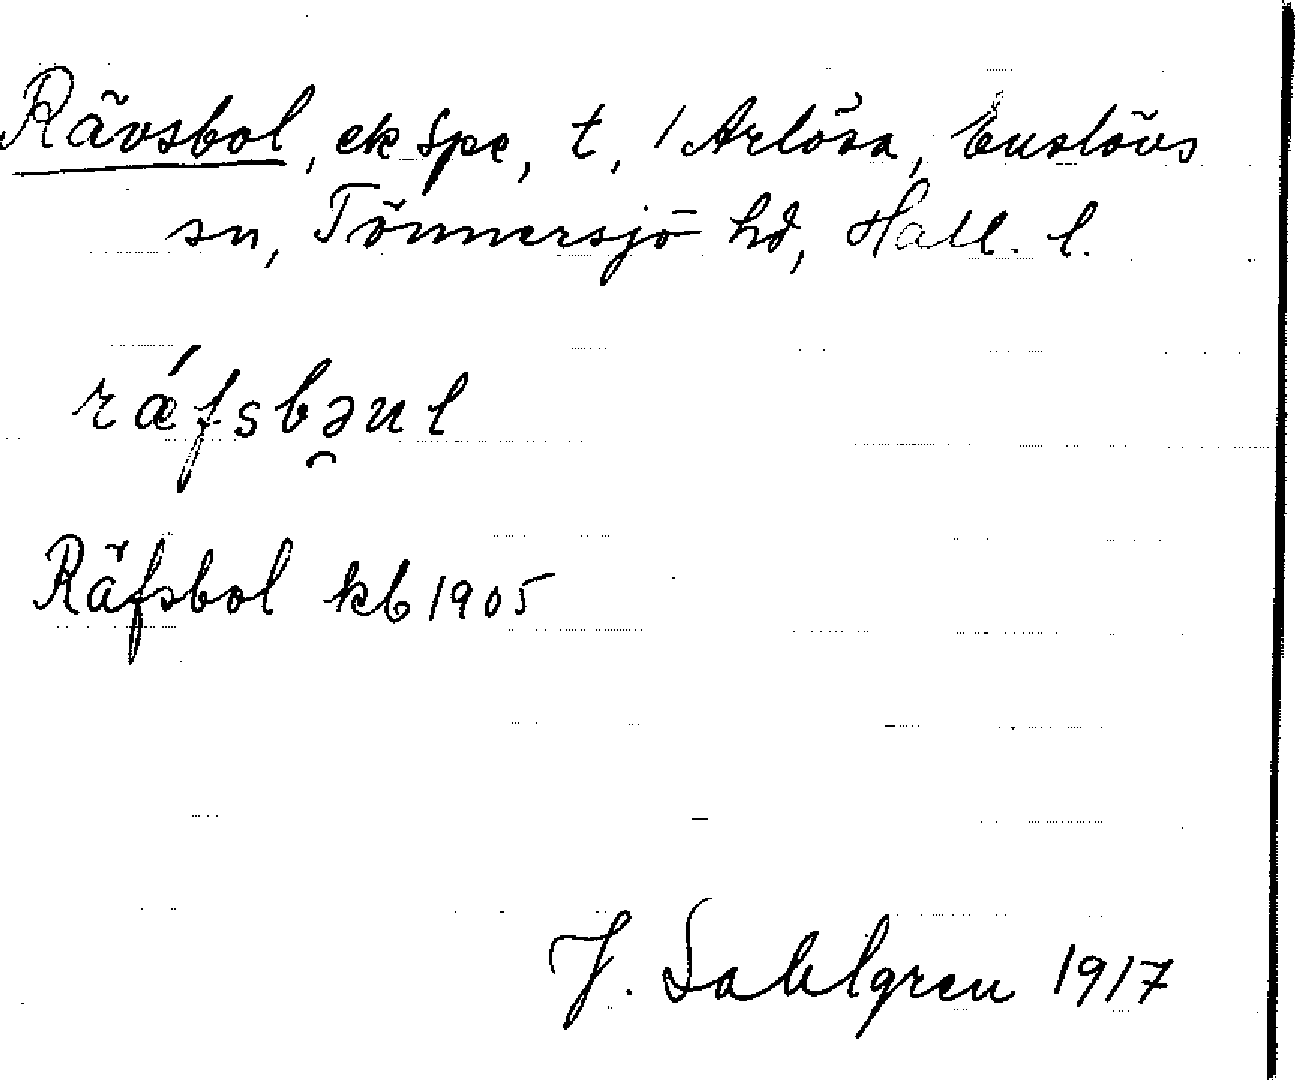 Rävsbol, ek spe, t, 1 Arlösa, Enslövs
sn, Tönnersjö hd, Hall. l.
rǽfsbə̯ul
Räfsbol kb 1905
J. Sahlgren 1917